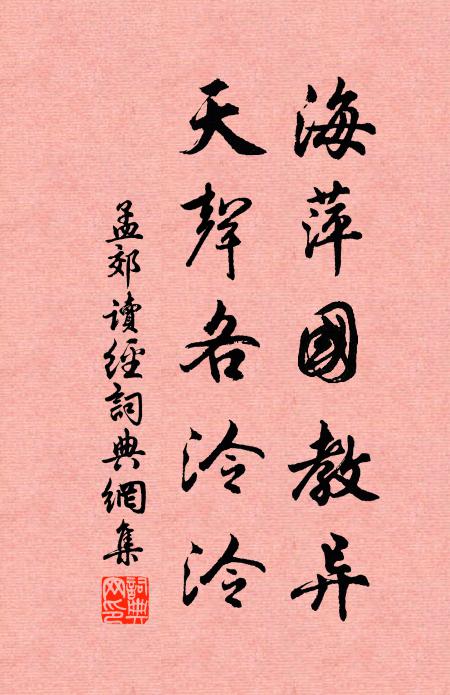 海萍國教异
天聲各泠泠
孟郊讀經詞典網集
詞典网印